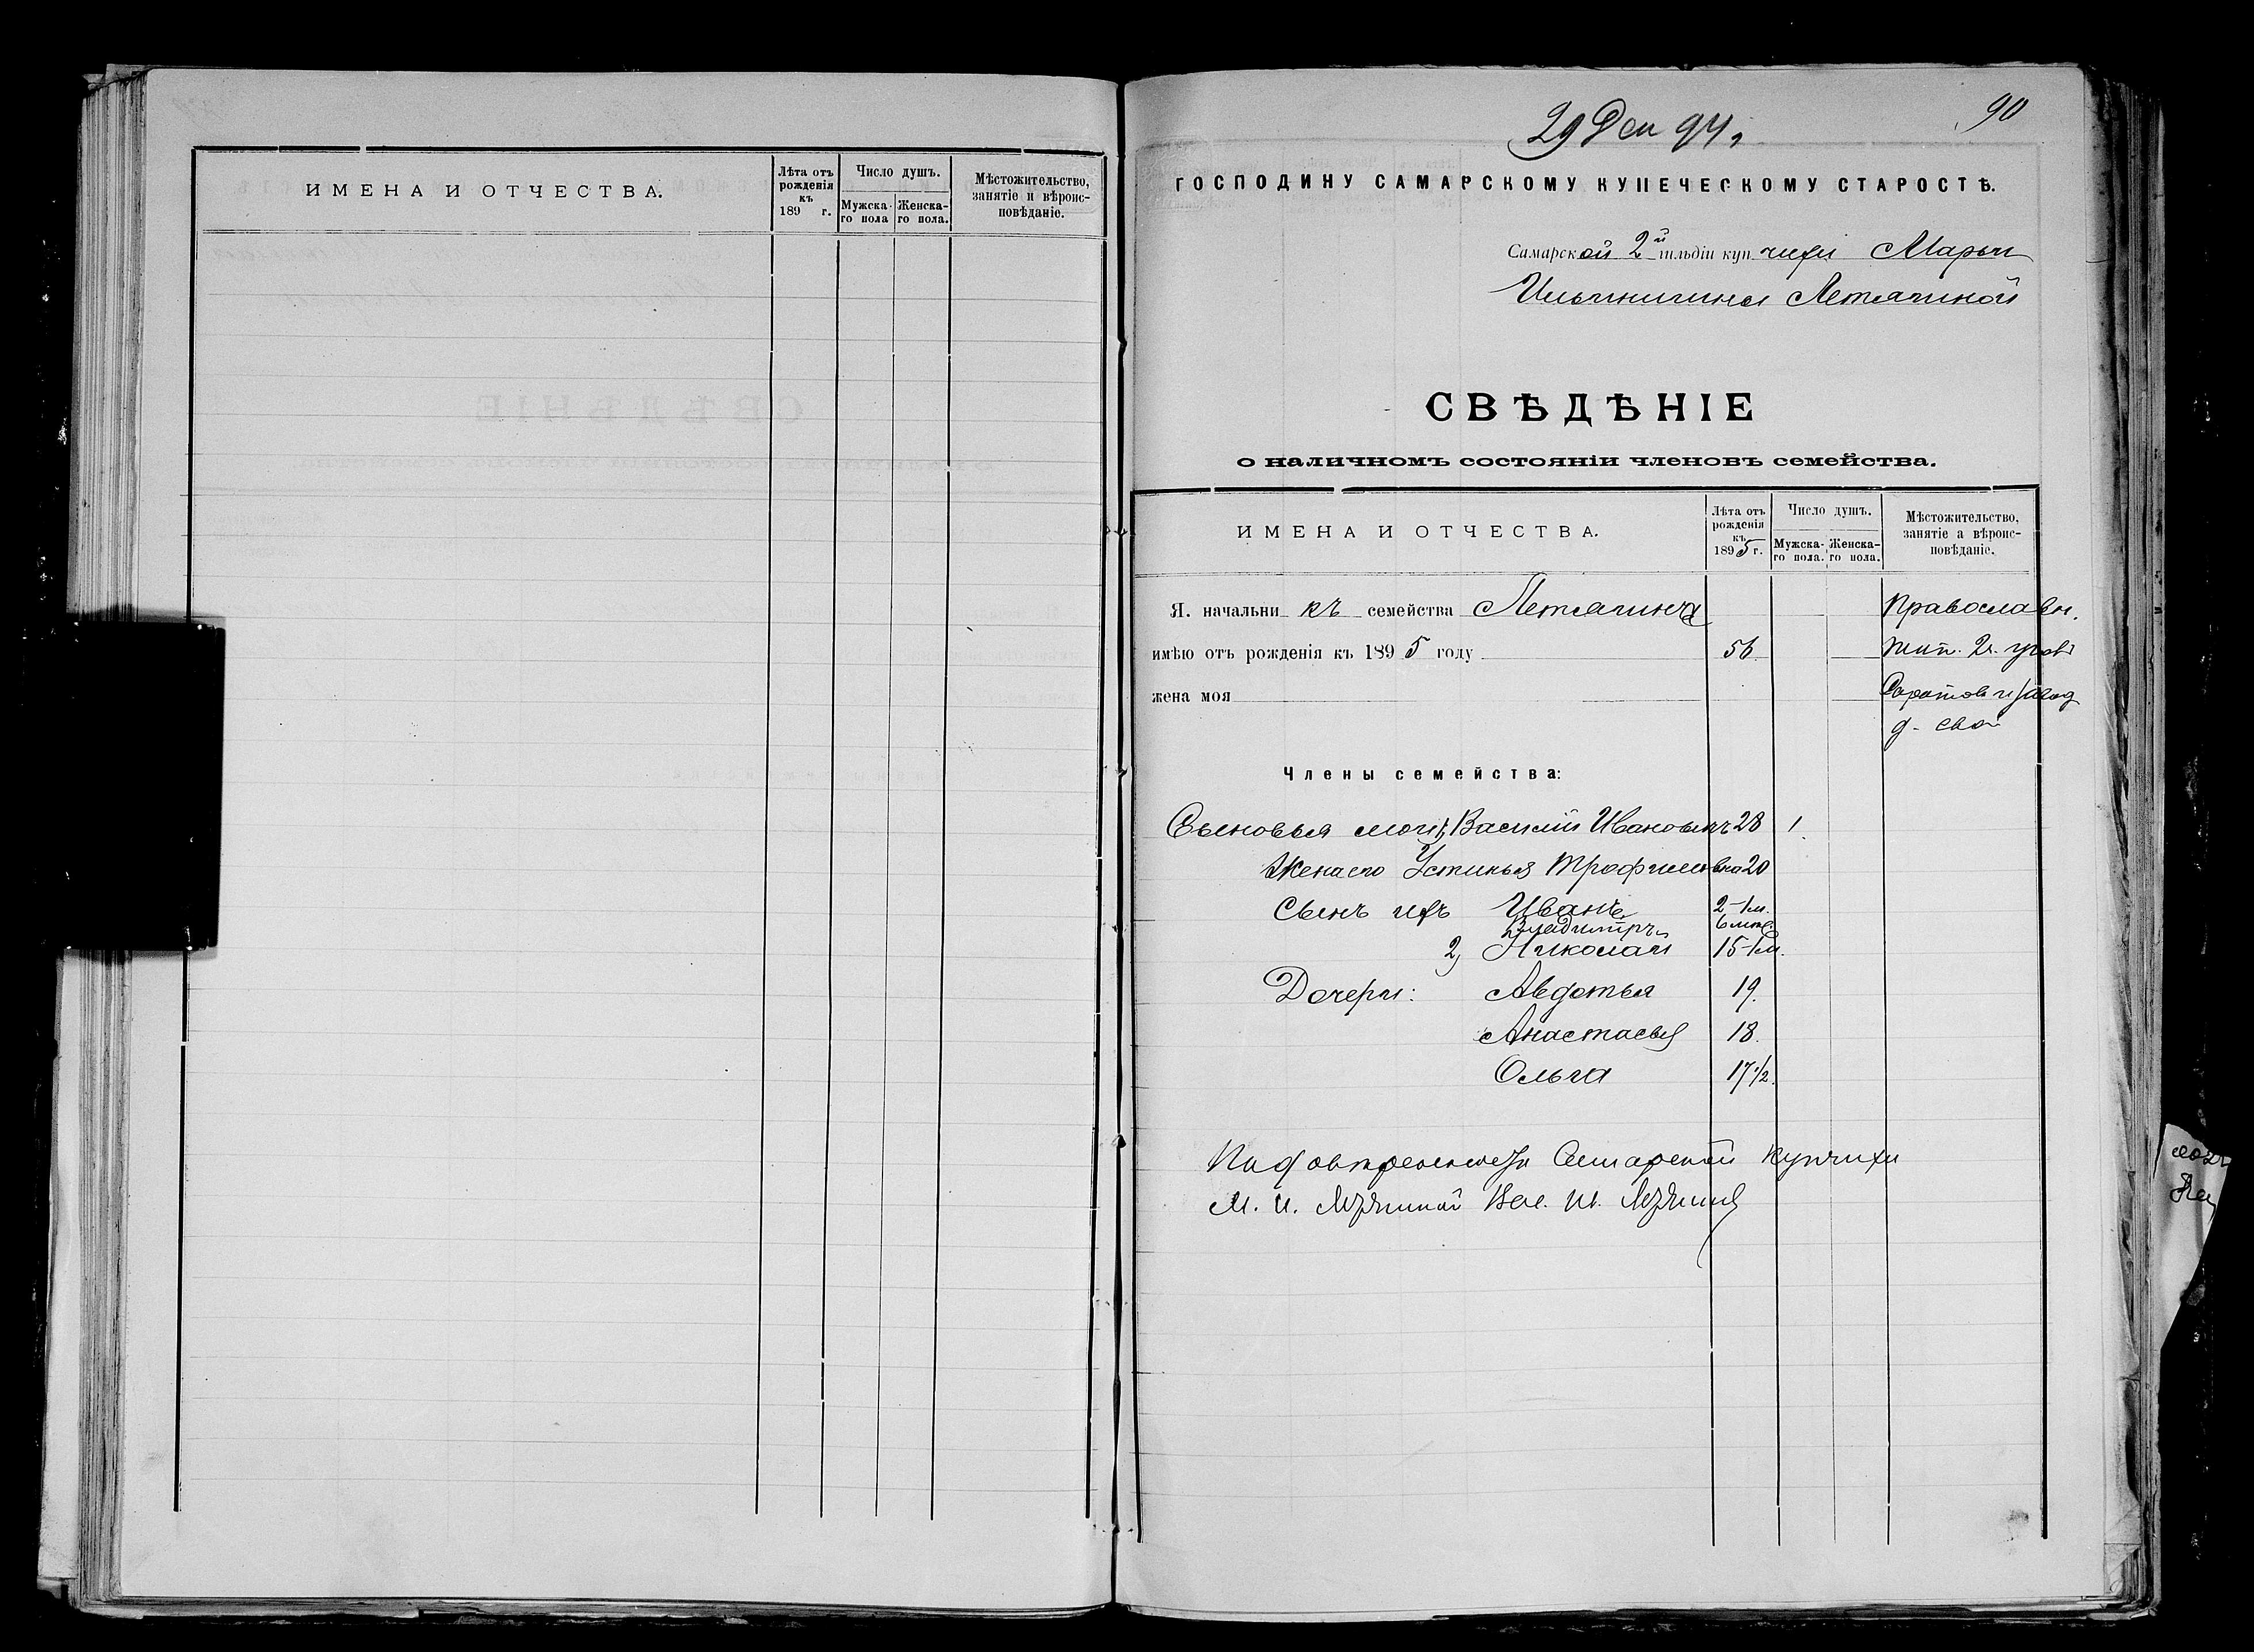 ИМЕНА И ОТЧЕСТВА.
Лѣта отъ рожденія къ 189 г.
Число душъ.
Мужска-го пола
Женска-го пола.
Мѣстожительство, занятіе и вѣроис-повѣданіе.
90
29 Дек 94 г
ГОСПОДИНУ САМАРСКОМУ КУПЕЧЕСКОМУ СТАРОСТѢ.
Самарской 2й гильдіи купчихи Марьи
Ильиничины Летягиной
СВѢДѢНІЕ
о наличномъ состояніи членовъ семейства.
ИМЕНА И ОТЧЕСТВА.
Лѣта отъ рожденія къ 1895 г.
Число душъ.
Мужска-го пола.
Женска-го пола.
Мѣстожительство, занятіе а вѣроис-повѣданіе.
Я. начальни къ семейства Летягина Православн.
имѣю отъ рожденія къ 1895 году 56 2
жена моя
д. свой
Члены семейства:
Сыновья мои 1, Василій Ивановичъ 28 1
Жена его Устинья Трофимовна 20
Сынъ ихъ Иванъ 2-1м.
Владимиръ 6 мѣс.
2, Николай 15-1м.
Дочери: Авдотья 19.
Анастасья 18.
Ольга 17½.
Самарской купчихи
М. И. Вас. Ив.